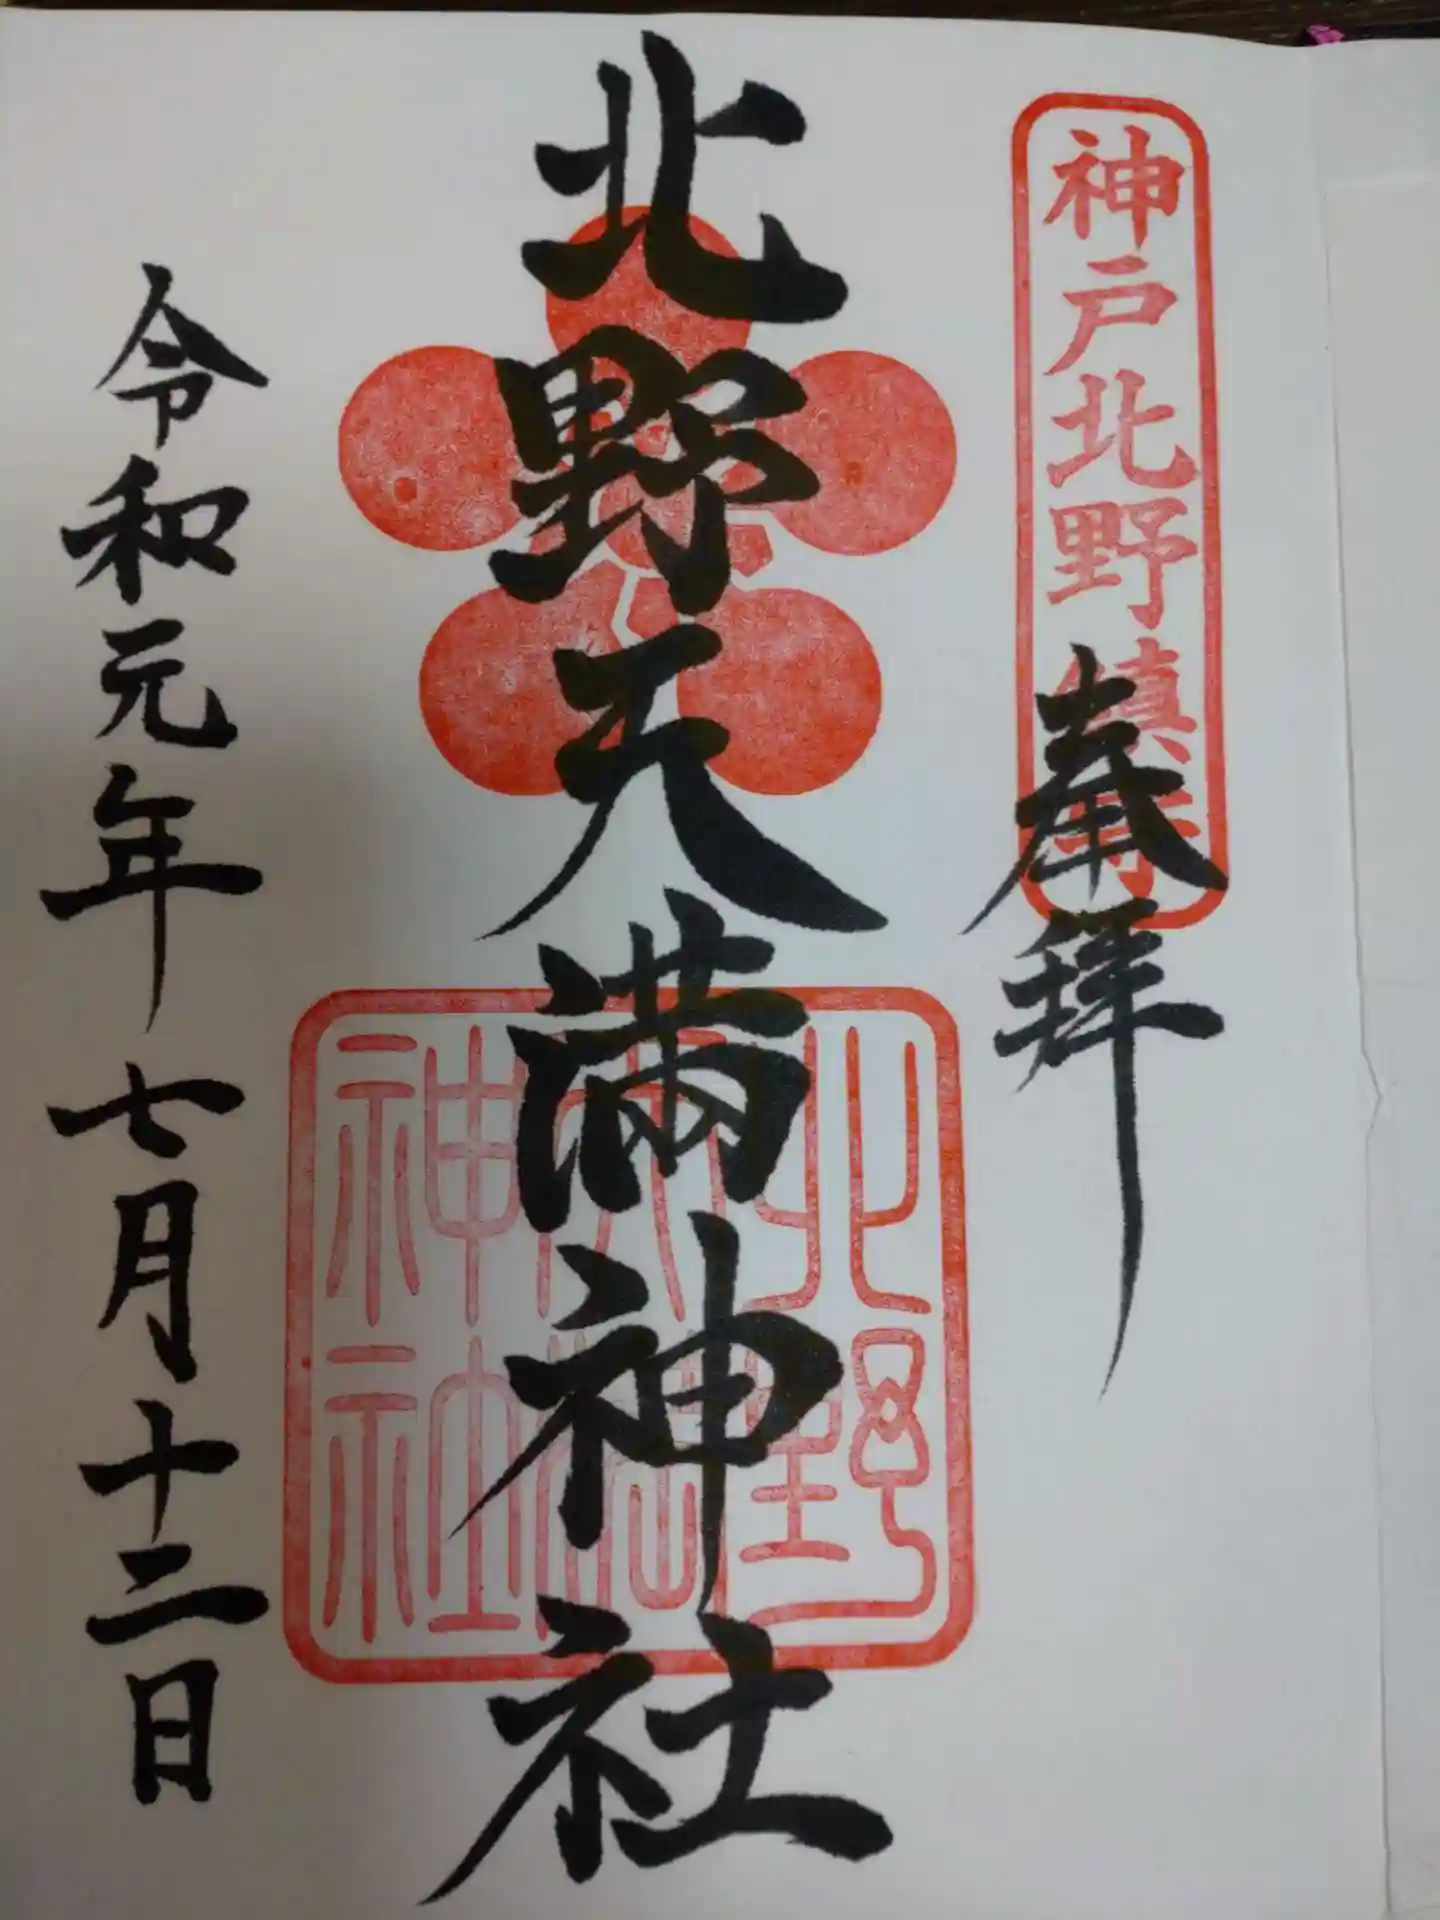 神戸北野鎮守
奉拝
北野天満神社
北野
天満
神社
令和元年七月十二日